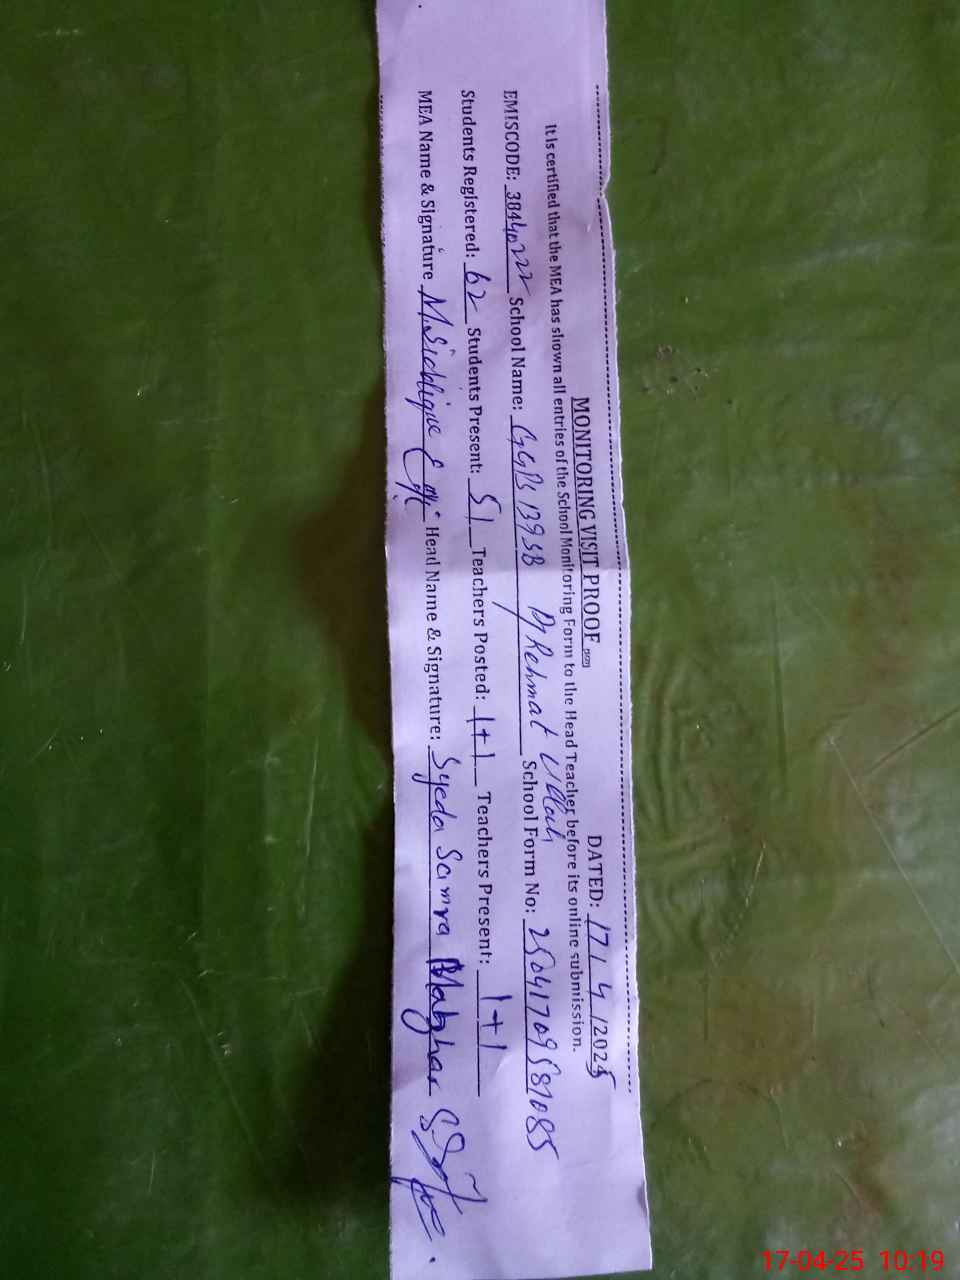 MONITORING VISIT PROOF DATED: 17/4/2025
It is certified that the MEA has shown all entries of the School Monitoring Form to the Head Teacher before its online submission.
EMISCODE: 38440222 School Name: GGPS 139 SB Dj Rehmat Ullah School Form No: 25041709581085
Students Registered: 62 Students Present: 51 Teachers Posted: 1+1 Teachers Present: 1+1
MEA Name & Signature M. Siddique Head Name & Signature: Syeda Samra Mazhar
17-04-25 10:19